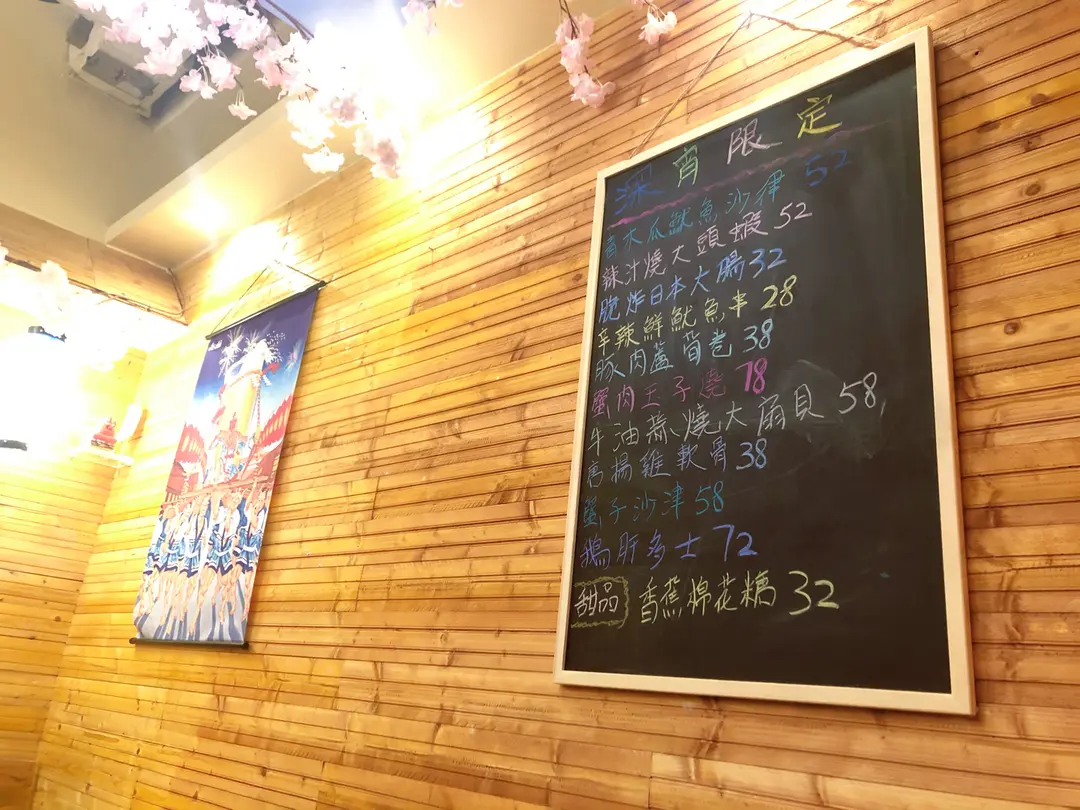 深宵限定
青木瓜魷魚沙律 52
辣汁燒大頭蝦 52
脆炸日本大腸 32
辛辣鮮魷魚串 28
豚肉蘆筍卷 38
蟹肉王子燒 78
牛油蒜燒大扇貝 58
唐揚雞軟骨 38
蟹子沙津 58
鵝肝多士 72
甜品 香蕉棉花糖 32